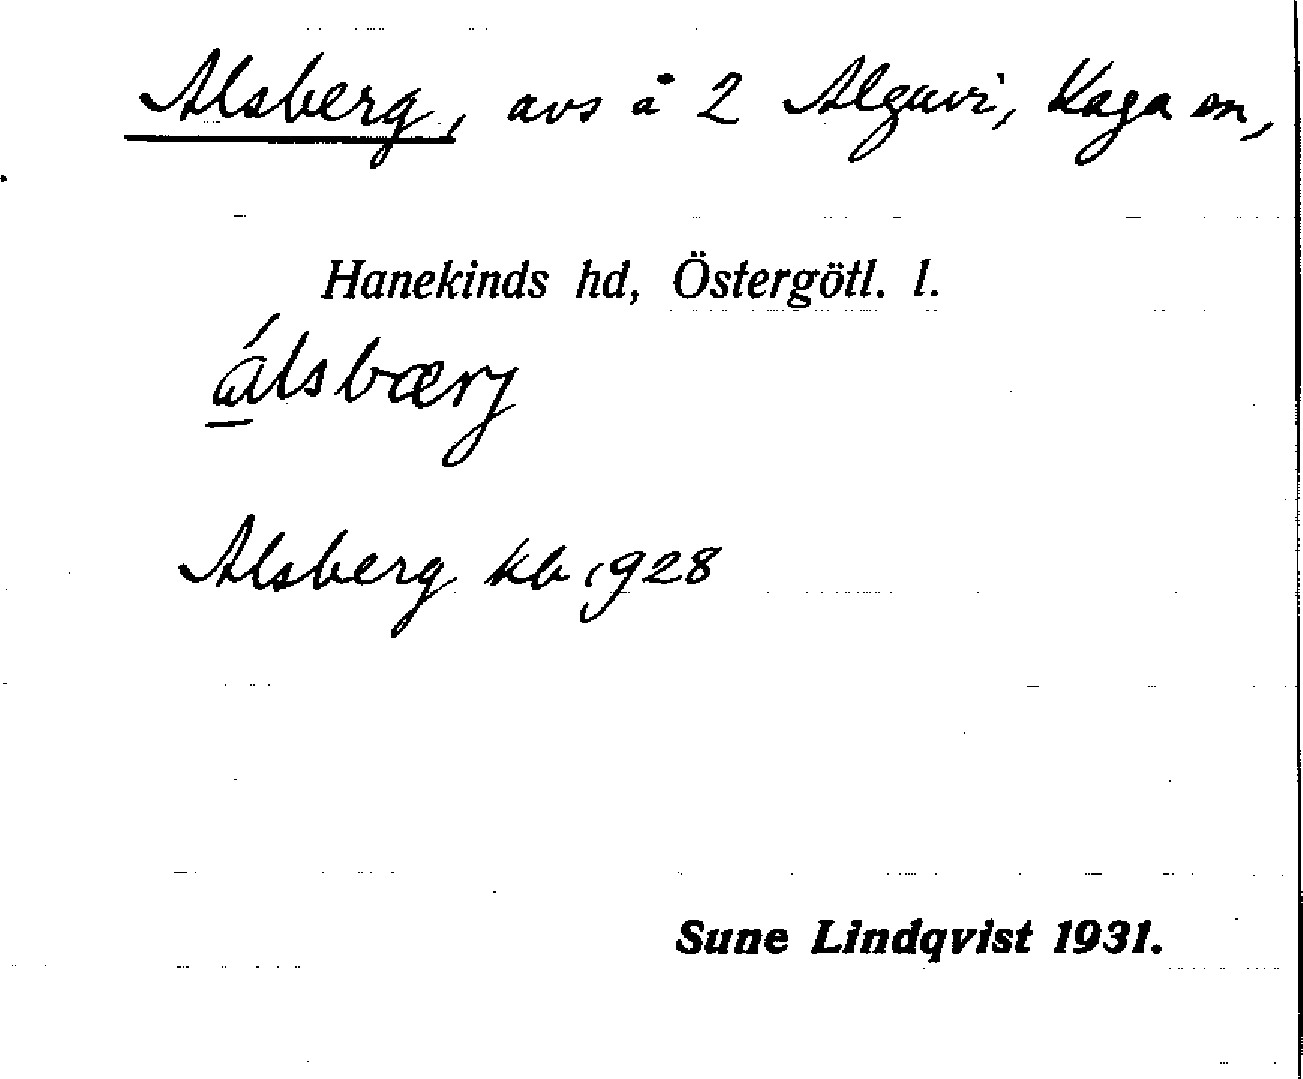 Alsberg, avs å 2 Alguvi, Kaga sn,
Hanekinds hd, Östergötl. l.
á̱lsbærj
Alsberg kb 1928
Sune Lindqvist 1931.